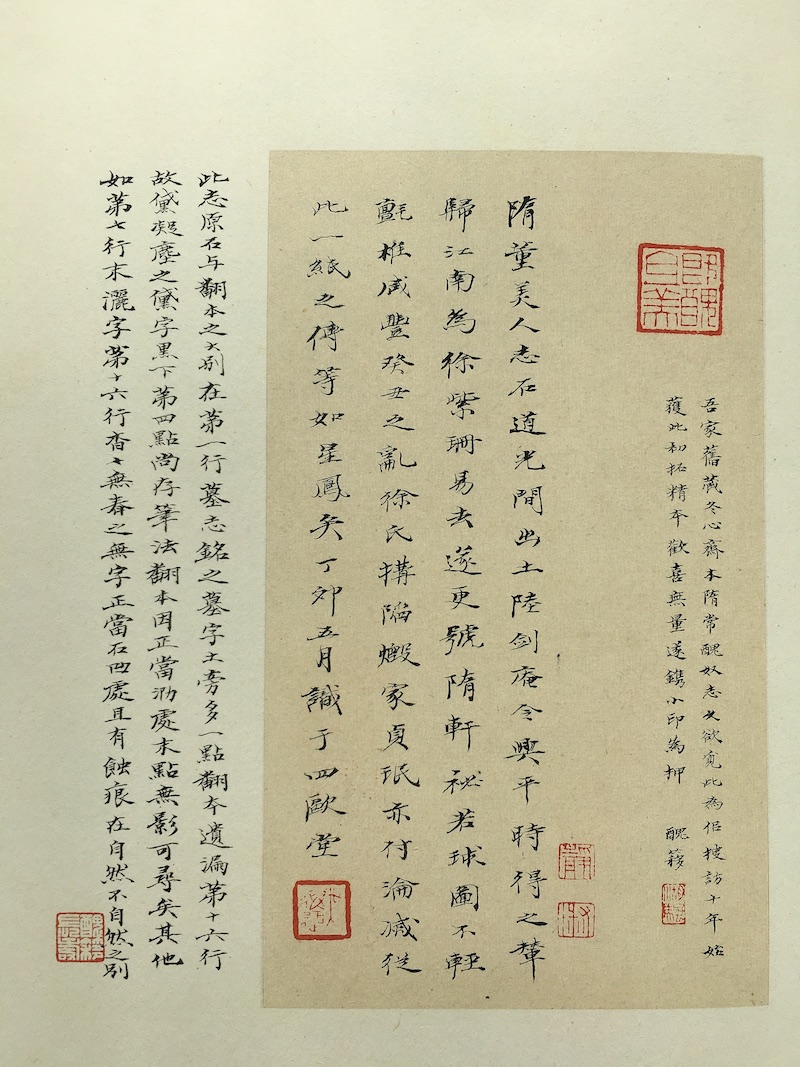 吾家舊藏冬心齋本隋常醜奴志久欲覓此為侶搜訪十年始
獲此初拓精本歡喜無量遂鐫小印為押 醜簃
隋董美人志石道光間出土陸劍庵令興平時得之輦
歸江南為徐紫珊易去遂更號隋軒祕若球圖不輕
氈椎咸豐癸丑之亂徐氏搆陷燬家貞珉亦付淪滅從
此一紙之傳等如星鳳矣丁卯五月識于四歐堂
此志原石与翻本之大別在第一行墓志銘之墓字土旁多一點翻本遺漏第十六行
故黛凝塵之黛字黑下第四點尚存筆法翻本因正當泐處末點無影可尋矣其他
如第七行末灑字第十六行杳〻無春之無字正當石凹處且有蝕痕在自然不自然之別